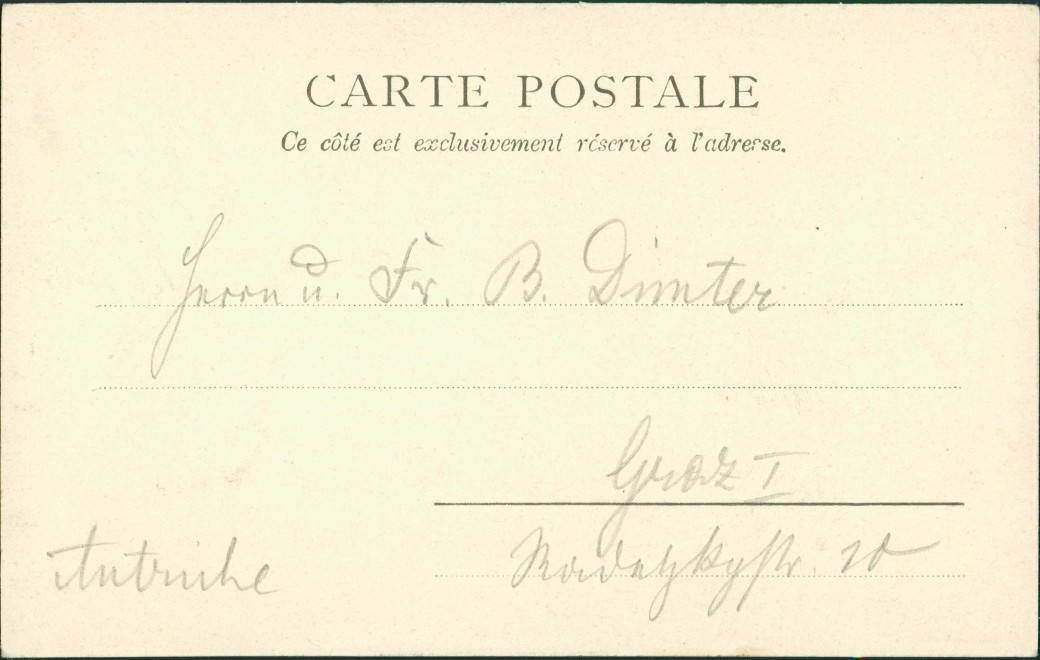 CARTE POSTALE
Ce côté est exclusivement réservé à l'adresse.
Herrn u. Fr. B. Dimter
Graz I
Radetzkystr. 10
Autriche